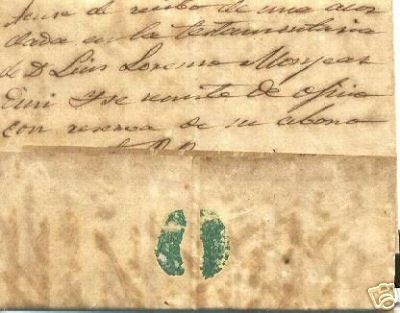 de recibo de una acor
dada en la testamentaria
de D Luis Lorenzo
y se remite de oficio
con reserva de su abono
ebay